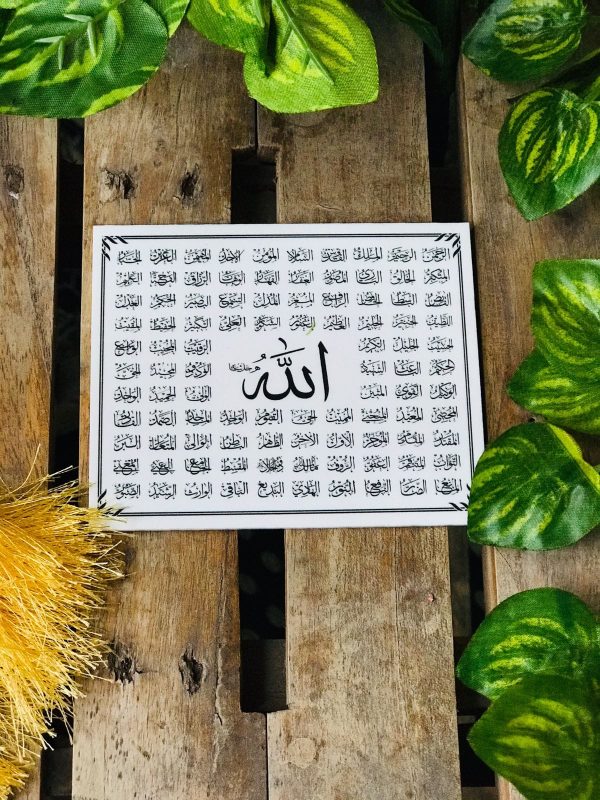 الرحمن الرحيم الملك القدوس السلام المؤمن المهيمن العزيز الجبار
المتكبر الخالق البارئ المصور الغفار القهار الوهاب الرزاق الفتاح العليم
القابض الباسط الخافض الرافع المعز المذل السميع البصير الحكم العدل
اللطيف الخبير الحليم العظيم الغفور الشكور العلي الكبير الحفيظ المقيت
الحسيب الجليل الكريم الرقيب الواسع
الله جل جلاله
الحكيم الباعث الشهيد الودود المجيد الحق
الوكيل القوي المتين الولي
المعيد المحيي المميت الحي القيوم الواحد الصمد القادر
المقتدر المقدم المؤخر الأول الآخر الظاهر الباطن الوالي المتعالي البر
التواب المنتقم العفو الرؤوف مالك الملك المقسط الجامع
المانع الضار النافع النور الهادي البديع الباقي الوارث الرشيد الصبور